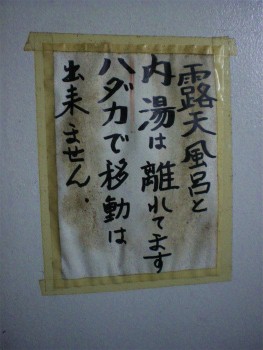 露天風呂と
内湯は離れてます
ハダカで移動は
出来ません.